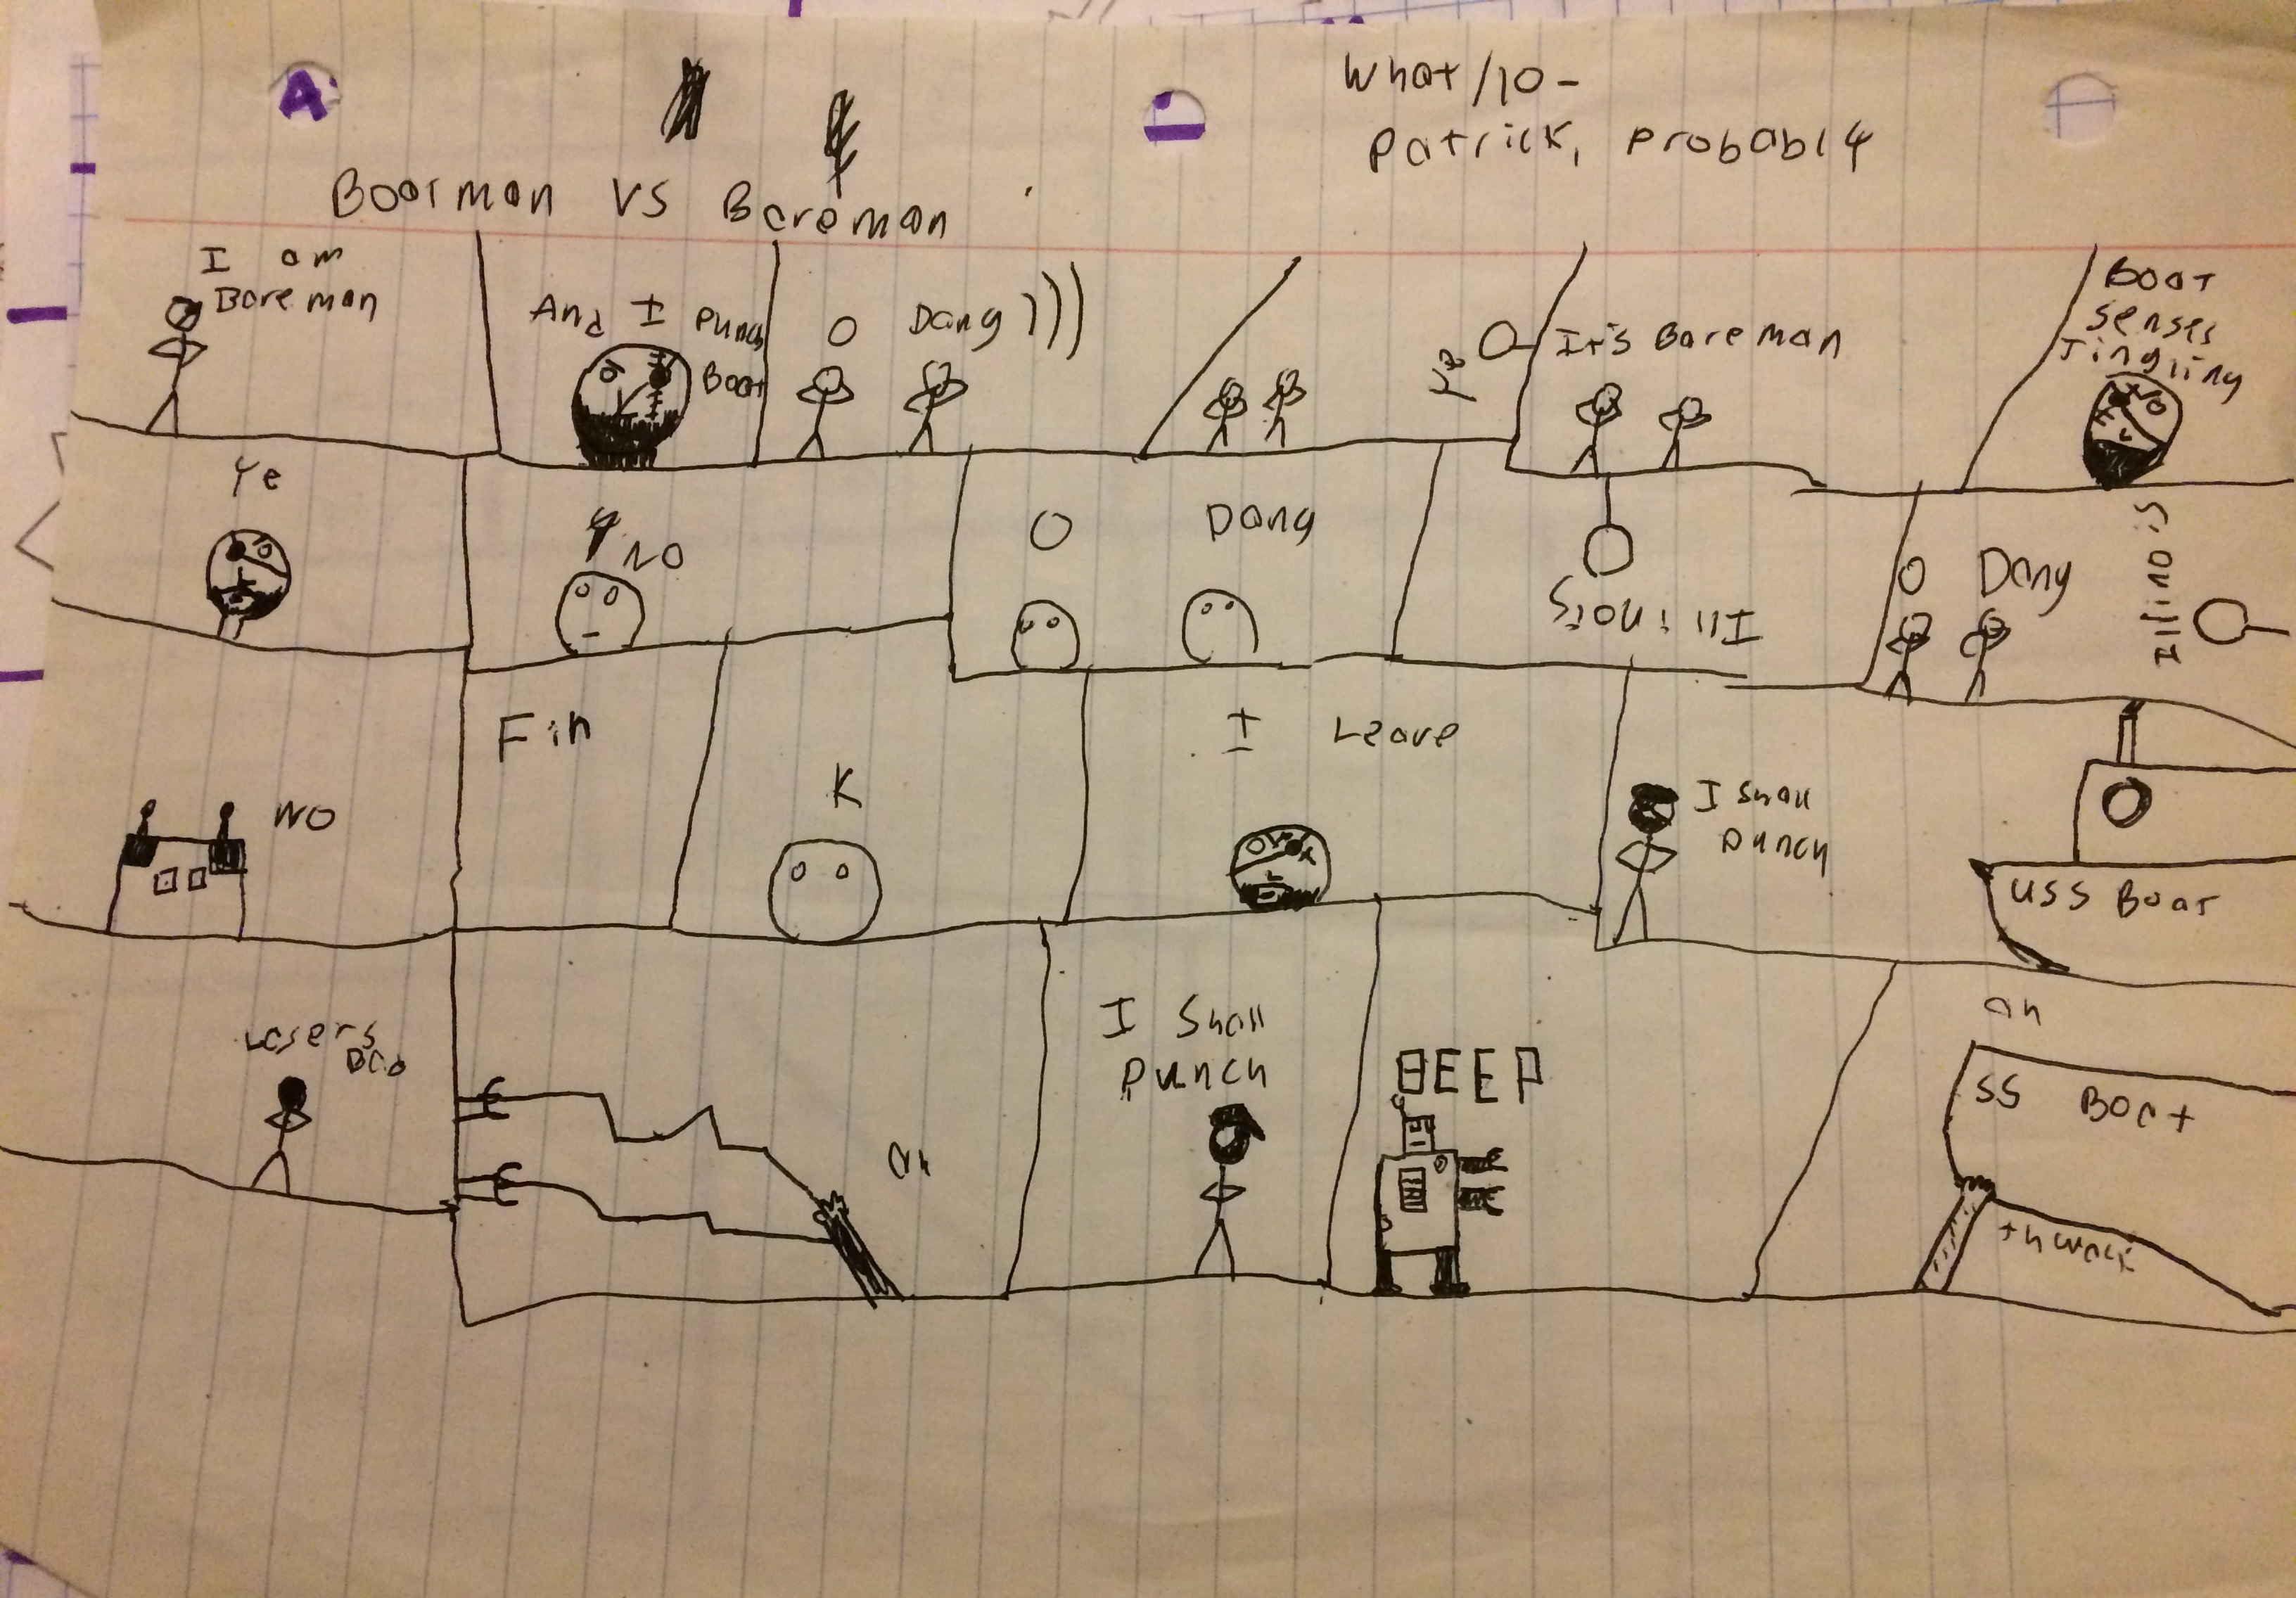 A
What/10-
Patrick, Probably
Boatman VS Bareman
I am
Bareman
And I Punch
Boat
O Dang
It's Bareman
Boat
Senses
Tingling
Ye
NO
O Dang
Illinois
O Dang
Illinois
NO
Fin
K
I Leave
I Shall
Punch
USS Boat
Lasers
ah
I Shall
Punch
BEEP
ah
SS Boat
thwack